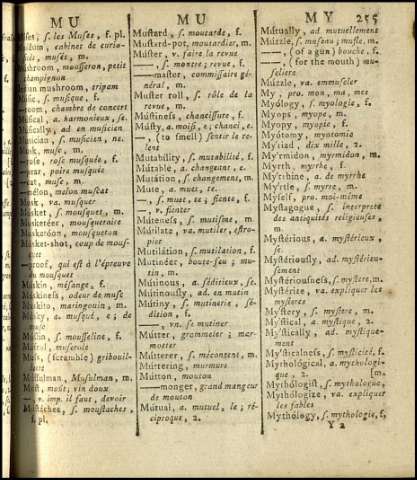 M U
M U
M Y 255
s. les Muses, f. pl.
cabinet de curio-
sités, musée, m.
mousseron, petit
champignon
mushroom, tripam
Music, s. musique, f.
room, chambre de concert
Musical, a. harmonieux, se
Musically, ad en musicien
Musician, s. musicien, ne
Musk, musc, m.
rose, rose musquée, f.
poire musquée
cat, musc, m.
mélon, melon muscat
Musk, va. musquer
Musket, s. mousquet, m.
Musketéer, mousquetaire
Musketóon, mousqueton
Musket-shot, coup de mous-
quet
proof, qui est à l'épreuve
du mousquet
Múskin, mésange, f.
Múskiness, odeur de musc
Muskíto, maringouin, m.
Músky, a. musqué, e; de
musc
Múslin, s. mousseline, f.
Muss, (scramble) gribouil-
lette
Mússulman, Musulman, m.
Must, moût, vin doux
—, v. imp. il faut, devoir
Mustáches, s. moustaches,
f. pl.
Mustard, s. moutarde, f.
Mustard-pot, moutardier, m.
Múster, v. faire la revue
—, s. montre; revue, f.
—master, commissaire gé-
néral, m.
Muster roll, s. rôle de la
revue, m.
Mústiness, chancissure, f.
Músty, a. moisi, e; chanci, e.
—, (to smell) sentir le re-
lent
Mutability, s. mutabilité, f.
Mútable, a. changeant, e.
Mutátion, s. changement, m.
Mute, a. muet, te.
—, s. muet, te; fiente, f.
—, v. fienter
Múteness, s. mutisme, m.
Mútilate, va. mutiler, estro-
pier
Mutilátion, s. mutilation, f.
Mutinéer, boute-feu; mu-
tin, m.
Mútinous, a. séditieux, se.
Mútinously, ad. en mutin
Mútiny, s. mutinerie, sé-
dition, f.
—, vn. se mutiner
Mútter, grommeler; mar-
motter
Mútterer, s. mécontent, m.
Múttering, murmure
Mútton, mouton
—monger, grand mangeur
de mouton
Mútual, a. mutuel, le; ré-
ciproque, 2.
Mútually, ad. mutuellement
Múzzle, s. museau; mufle, m.
—, (of a gun) bouche, f.
—, (for the mouth) mu-
seliere
Múzzle, va. emmuseler
My, pro. mon, ma, mes
Myólogy, s. myologie, f.
Myops, myope, m.
Myopy, myopie, f.
Myótomy, myotomie
My'riad, dix mille, 2.
My'rmidon, myrmidon, m.
Myrrh, myrrhe, f.
My'rrhine, a. de myrrhe
My'rtle, s. myrte, m.
Myself, pro. moi-même
Mystagogue, s. interprete
des antiquités religieuses,
m.
Mystérious, a. mystérieux,
se
Mystériously, ad. mystérieu-
sement
Mystériousness, s. mystere, m.
Mystérize, va. expliquer les
mysteres
My'stery, s. mystere, m.
My'stical, a. mystique, 2.
My'stically, ad. mystique-
ment
My'sticalness, s. mysticité, f.
Mythológical, a. mythologi-
que, 2. [m.
Mythólogist, s. mythologue,
Mythólogize, va. expliquer
les fables
Mythólogy, s. mythologie, f.
Y 2